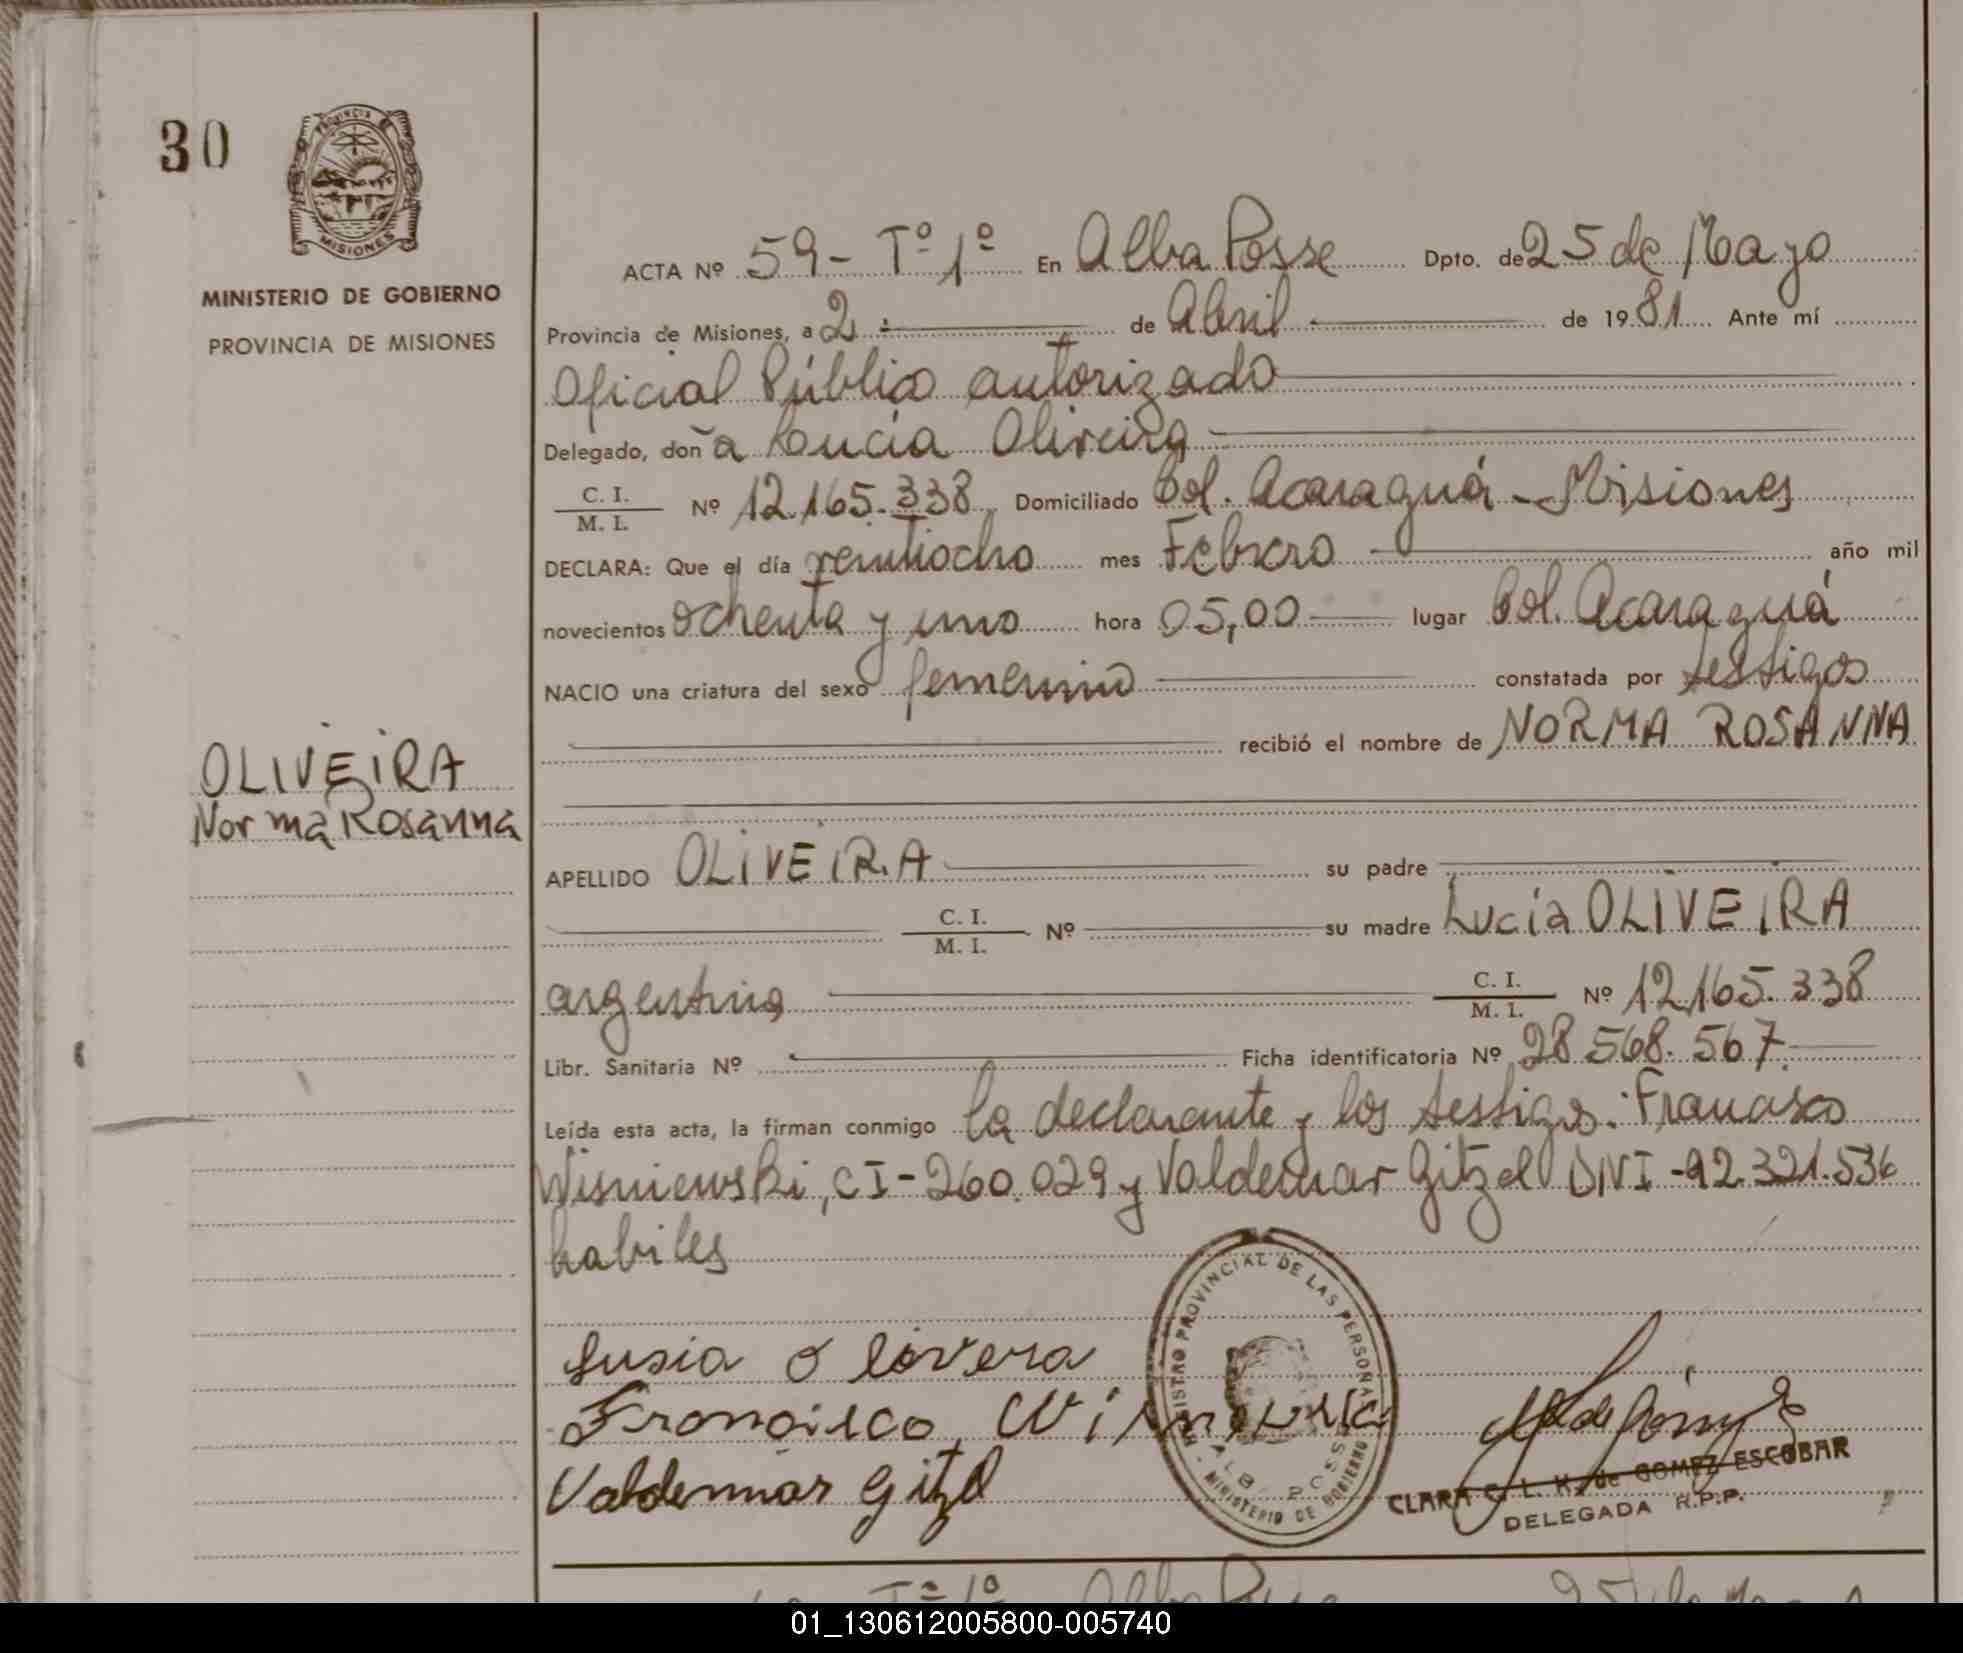 30
PROVINCIA DE
MISIONES
MINISTERIO DE GOBIERNO
PROVINCIA DE MISIONES
OLIVEIRA
Norma Rosanna
ACTA Nº 59- Tº 1º En Alba Posse Dpto. de 25 de Mayo
Provincia de Misiones, a 2 de Abril de 1981 Ante mí
Oficial Público autorizado
Delegado, doña Lucía Oliveira
C. I. / M. I. Nº 12.165.338 Domiciliado Col. Acaraguá - Misiones
DECLARA: Que el día veintiocho mes Febrero año mil
novecientos ochenta y uno hora 05,00 lugar Col. Acaraguá
NACIO una criatura del sexo femenino constatada por testigos
recibió el nombre de NORMA ROSANNA
APELLIDO OLIVEIRA su padre
C. I. / M. I. Nº su madre Lucía OLIVEIRA
argentina C. I. / M. I. Nº 12.165.338
Libr. Sanitaria Nº Ficha identificatoria Nº 28.568.567
Leída esta acta, la firman conmigo la declarante y los testigos: Francisco
Wisniewski, CI-260.029 y Valdemar Gitzel DNI-92.321.536
habiles
REGISTRO PROVINCIAL DE LAS PERSONAS
ALBA POSSE
MINISTERIO DE GOBIERNO
Lusia Olivera
Francisco
Valdemar Gitzel
CLARA C. L. H. de GOMEZ ESCOBAR
DELEGADA R.P.P.
Tº 1º Alba Posse 25 de Mayo
01_130612005800-005740